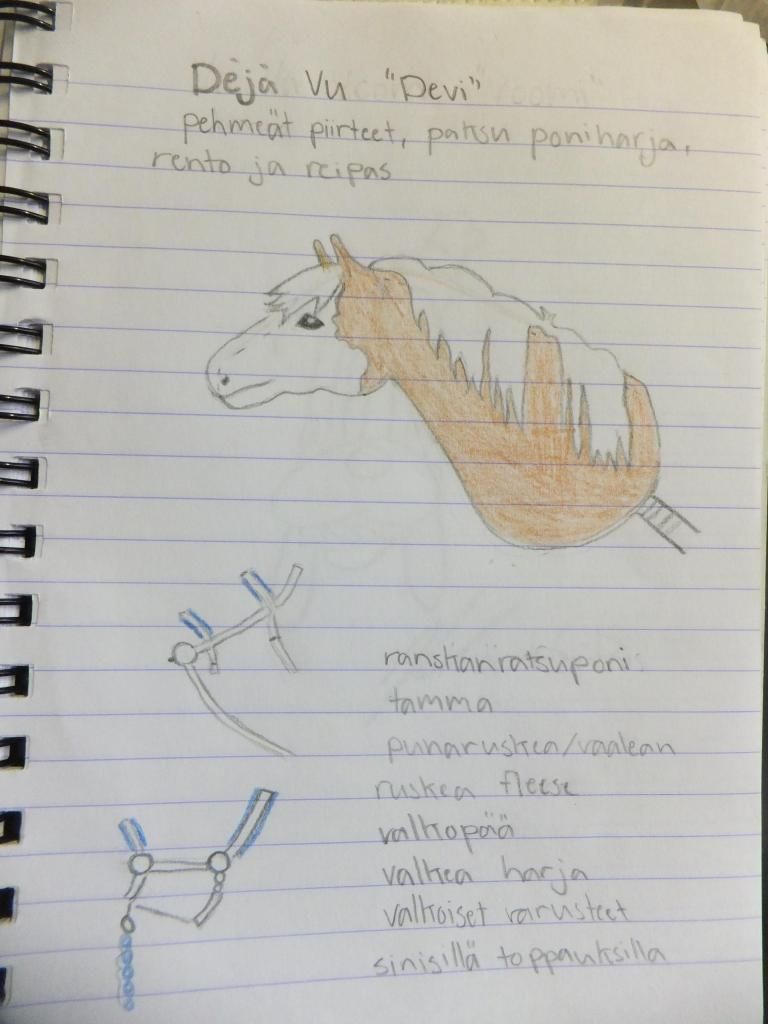 Dėjà Vu "Devi"
pehmeät piirteet, paksu poniharja,
rento ja reipas
ranskanratsuponi
tamma
punaruskea/vaalean
ruskea fleese
valkopää
valkea harja
valkoiset varusteet
sinisillä toppauksilla